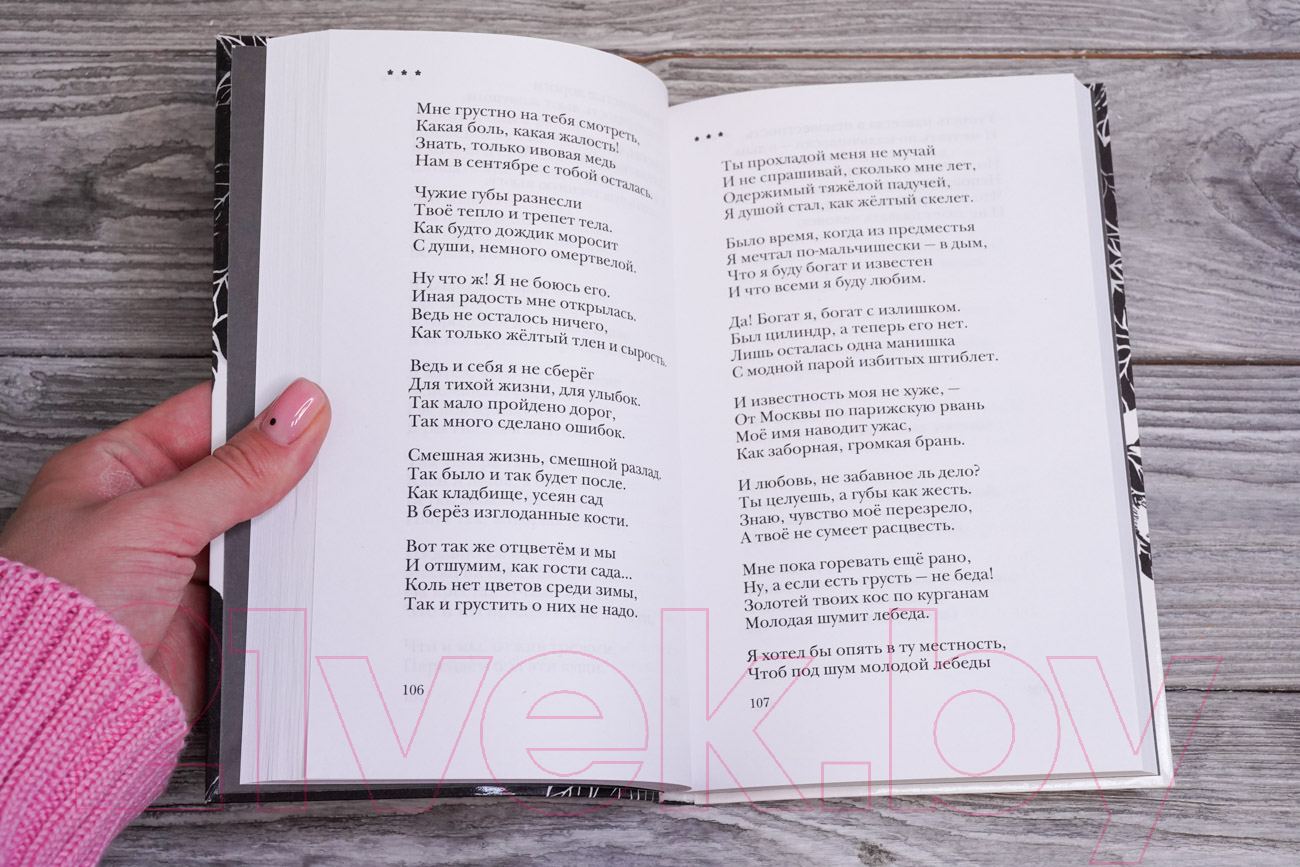 * * *
Мне грустно на тебя смотреть,
Какая боль, какая жалость!
Знать, только ивовая медь
Нам в сентябре с тобой осталась.
Чужие губы разнесли
Твоё тепло и трепет тела.
Как будто дождик моросит
С души, немного омертвелой.
Ну что ж! Я не боюсь его.
Иная радость мне открылась.
Ведь не осталось ничего,
Как только жёлтый тлен и сырость.
Ведь и себя я не сберёг
Для тихой жизни, для улыбок.
Так мало пройдено дорог,
Так много сделано ошибок.
Смешная жизнь, смешной разлад.
Так было и так будет после.
Как кладбище, усеян сад
В берёз изглоданные кости.
Вот так же отцветём и мы
И отшумим, как гости сада...
Коль нет цветов среди зимы,
Так и грустить о них не надо.
106
* * *
Ты прохладой меня не мучай
И не спрашивай, сколько мне лет,
Одержимый тяжёлой падучей,
Я душой стал, как жёлтый скелет.
Было время, когда из предместья
Я мечтал по-мальчишески — в дым,
Что я буду богат и известен
И что всеми я буду любим.
Да! Богат я, богат с излишком.
Был цилиндр, а теперь его нет.
Лишь осталась одна манишка
С модной парой избитых штиблет.
И известность моя не хуже, —
От Москвы по парижскую рвань
Моё имя наводит ужас,
Как заборная, громкая брань.
И любовь, не забавное ль дело?
Ты целуешь, а губы как жесть.
Знаю, чувство моё перезрело,
А твоё не сумеет расцвесть.
Мне пока горевать ещё рано,
Ну, а если есть грусть — не беда!
Золотей твоих кос по курганам
Молодая шумит лебеда.
Я хотел бы опять в ту местность,
Чтоб под шум молодой лебеды
107
21vek.by